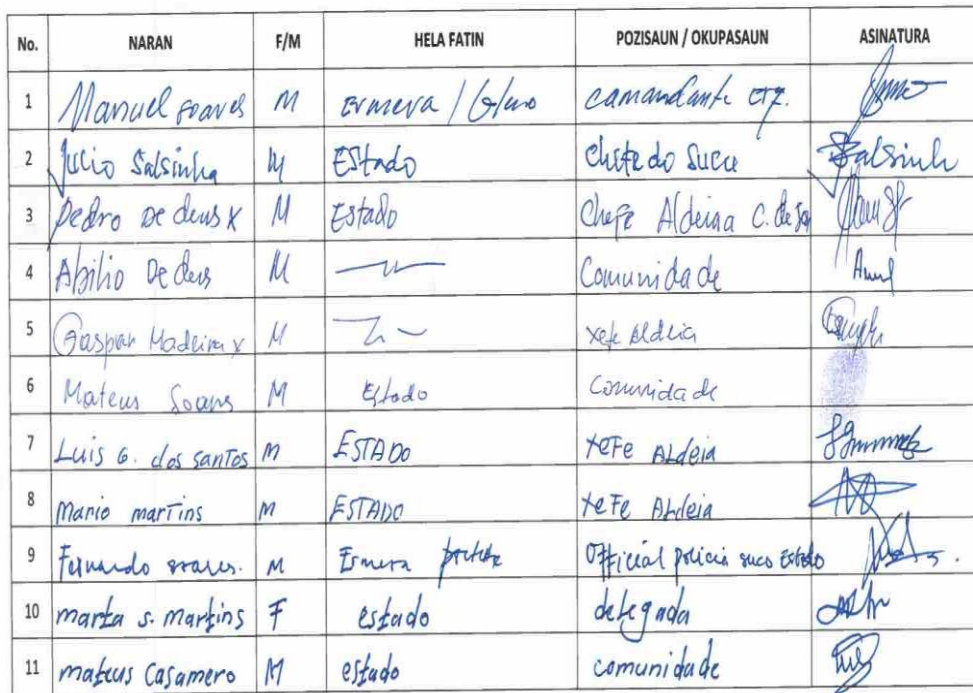 No. NARAN F/M HELA FATIN POZISAUN / OKUPASAUN ASINATURA
1 Manuel soares M Ermera / Gleno comandante
2 Julio Salsinha M EStado Chefe do Sucu Salsinh
3 Pedro De deus x M Estado Chefe Aldeina C. de
4 Abilio De deus M Comunidade
5 Gaspar Madeira x M xefe Aldeia
6 Mateus Soares M Estado Comunidade
7 Luis G. dos santos M ESTADO xefe Aldeia
8 Mario martins M ESTADO xefe Aldeia
9 Fernando soares. M Ermera Official policia suco Estado
10 marta s. martins F estado delegada
11 mateus Casamero M estado comunidade